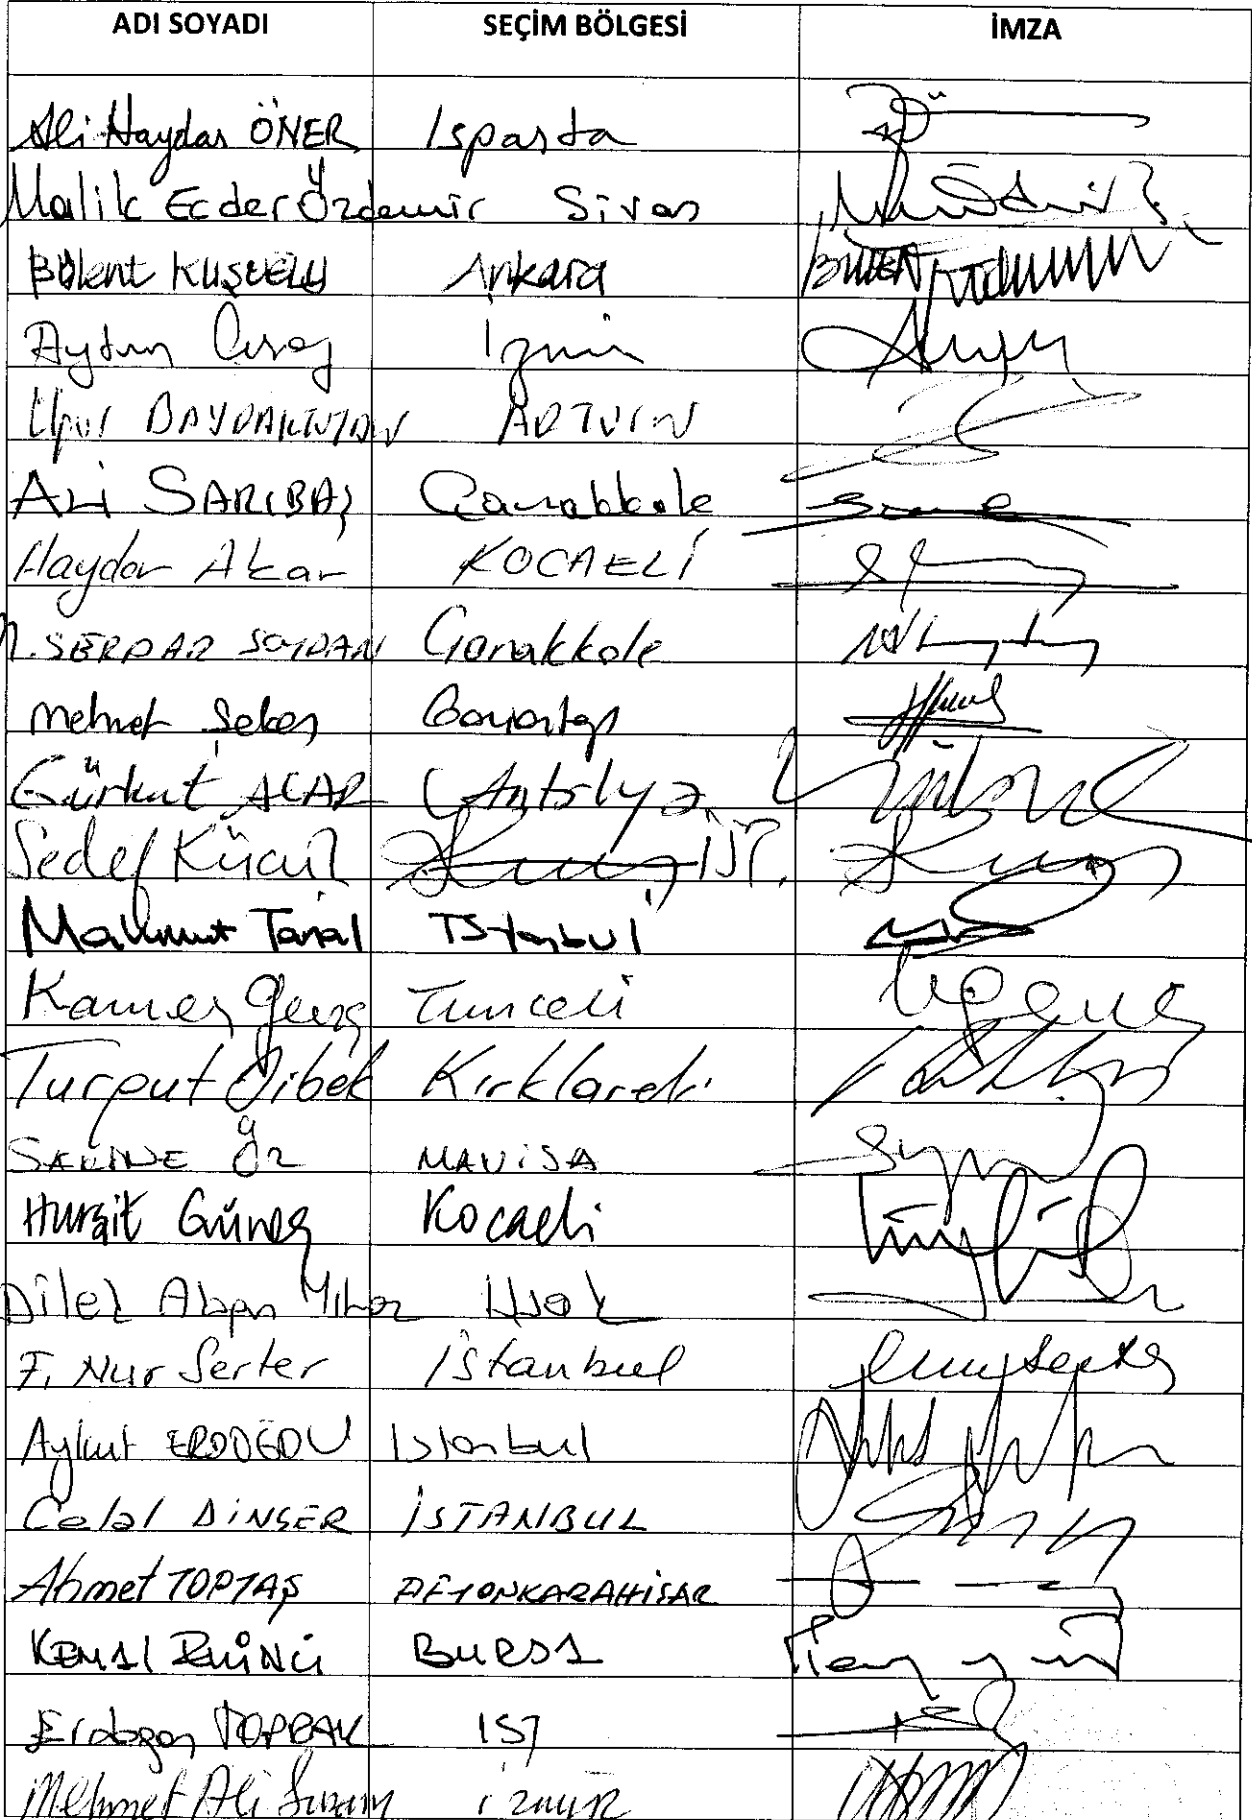 ADI SOYADI SEÇİM BÖLGESİ İMZA
Ali Haydar ÖNER Isparta
Malik Ecder Özdemir Sivas
Bülent KUŞOĞLU Ankara
Aytun Çıray İzmir
Uğur BAYRAKTUTAN ARTVİN
ALİ SARIBAŞ Çanakkale
Haydar Akar KOCAELİ
M. SERDAR SOYDAN Çanakkale
Mehmet Şeker Gaziantep
Gürkut ACAR Antalya
Sedef Küçük İST.
Mahmut Tanal İstanbul
Kamer Genç Tunceli
Turgut Dibek Kırklareli
SAKİNE ÖZ MANİSA
Hurşit Güneş Kocaeli
Dilek Akagün Yılmaz Uşak
F. Nur Serter İstanbul
Aykut ERDOĞDU İstanbul
Celal DİNÇER İSTANBUL
Ahmet TOPTAŞ AFYONKARAHİSAR
KEMAL EKİNCİ BURSA
Erdoğan TOPRAK İST
Mehmet Ali Susam İzmir